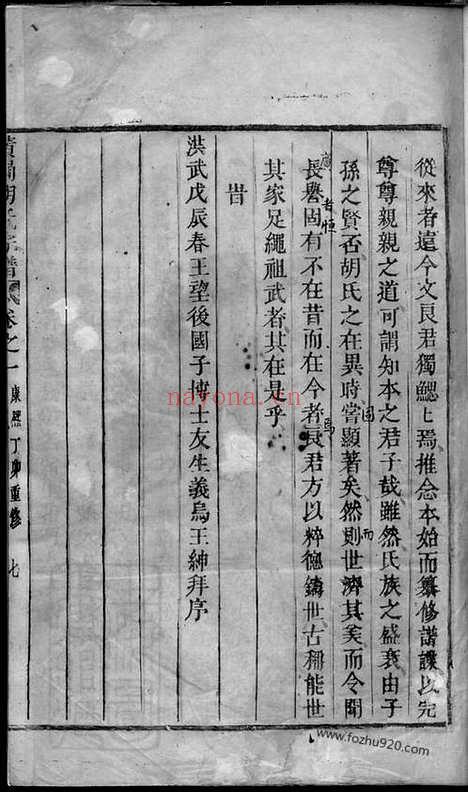 從來者遠今文良君獨鰓上焉推念本始而纂修譜諜以完
尊尊親親之道可謂知本之君子哉雖然氏族之盛衰由子
孫之賢否胡氏之在異時嘗顯著矣然則世濟其美而令聞
固 而
長譽固有不在昔而在今者良君方以粹德鑄世古稱能世
者恒 焉
其家足繩祖武者其在是乎
旹
洪武戊辰春王望後國子博士友生義烏王紳拜序
胡氏宗譜 卷之一 康熙丁卯重修 七
nayona.cn
www.fozhu920.com